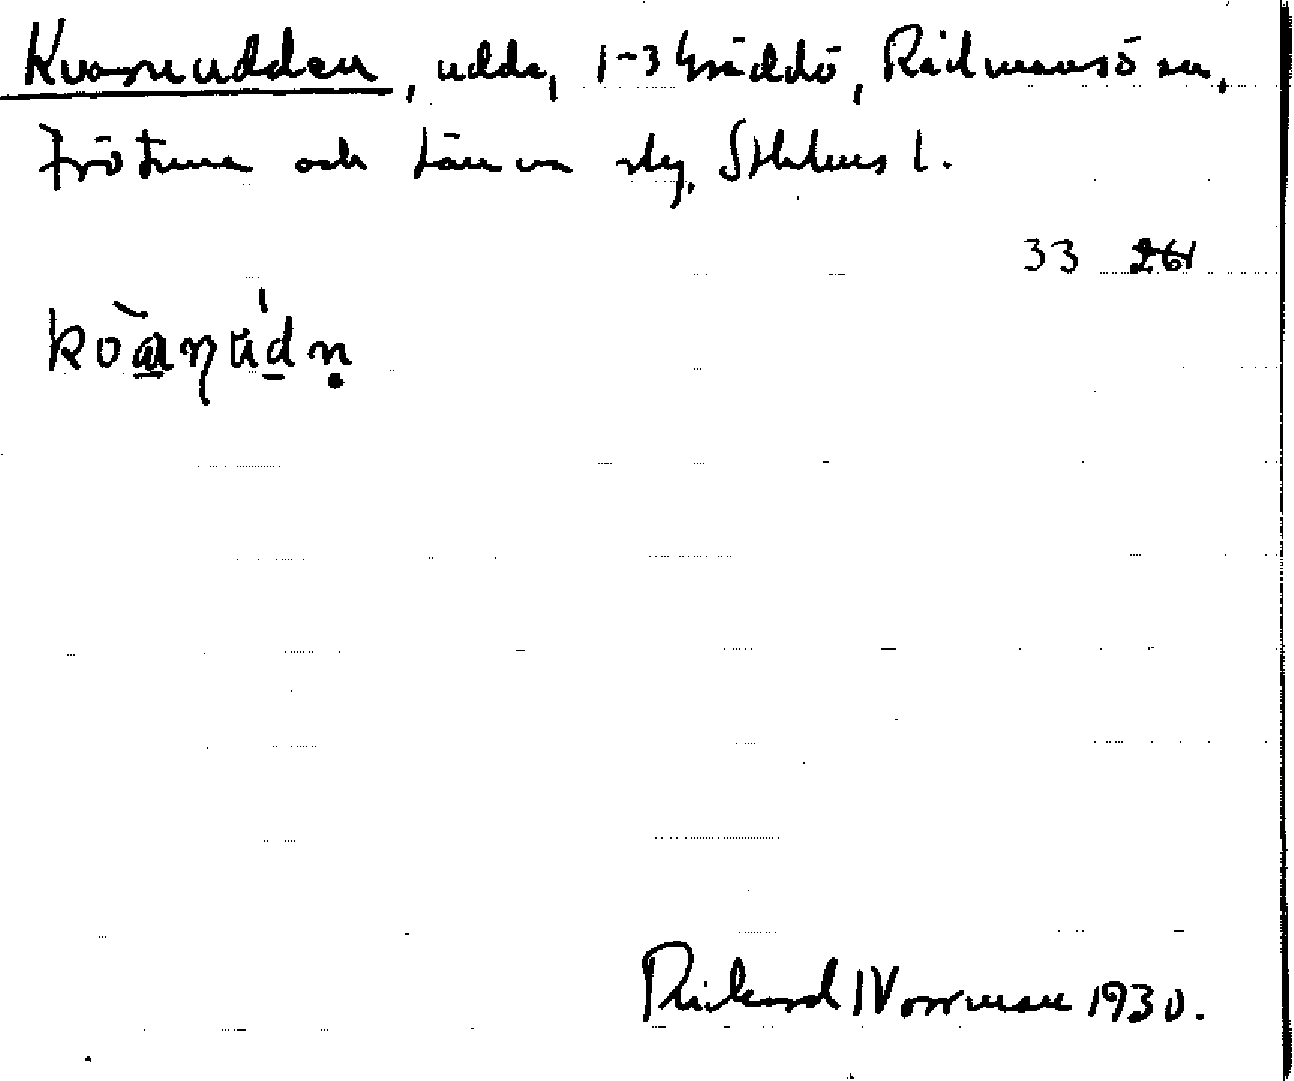 Kvarnudden, udde, 1-3 Gräddö, Rådmansö sn,
Frötuna och Länna slg, Sthlms l.
33 261
Rickard Norrman 1930.